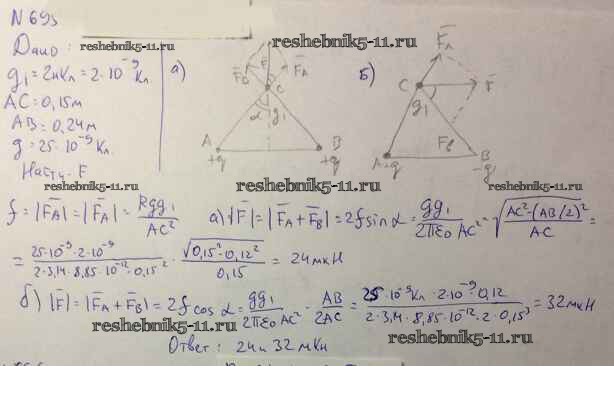 N 695
Дано:
reshebnik5-11.ru
g₁ = 2нКл = 2·10⁻⁹ Кл
AC = 0,15м
AB = 0,24м
g = 25·10⁻⁹ Кл
Найти: F
reshebnik5-11.ru
а)
F_B F F_A
C
α g₁
A B
+q +q
reshebnik5-11.ru
б)
F_A
C F
g₁
F_B
A +q B -q
reshebnik5-11.ru
f = |F_A| = |F_A| = Rgg₁/AC² а) |F| = |F_A + F_B| = 2f sin α = gg₁/2πε₀AC² · √(AC² - (AB/2)²/AC) =
= 25·10⁻⁹·2·10⁻⁹/2·3,14·8,85·10⁻¹²·0,15² · √0,15²·0,12²/0,15 = 24мкН
reshebnik5-11.ru
б) |F| = |F_A + F_B| = 2f cos α = gg₁/2πε₀AC² · AB/2AC = 25·10⁻⁹Кл·2·10⁻⁹·0,12/2·3,14·8,85·10⁻¹²·2·0,15³ = 32мкН
reshebnik5-11.ru
Ответ: 24 и 32 мкН
reshebnik5-11.ru